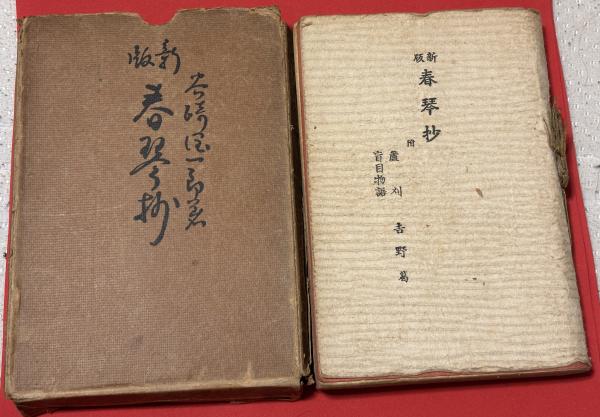 新版
谷崎潤一郎著
春琴抄
新版
春琴抄
附
蘆刈 吉野葛
盲目物語